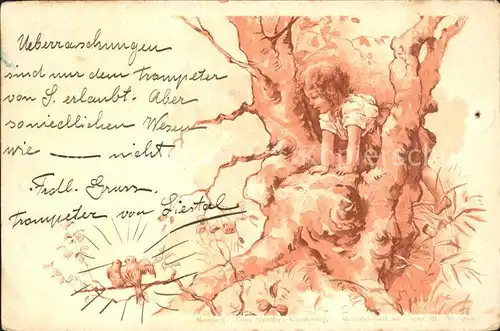 Ueberraschungen
sind nur dem trompeter
von S. erlaubt. Aber
so niedlichen Wesen
wie — nicht.
Frdl. Gruss.
trompeter von Liestal